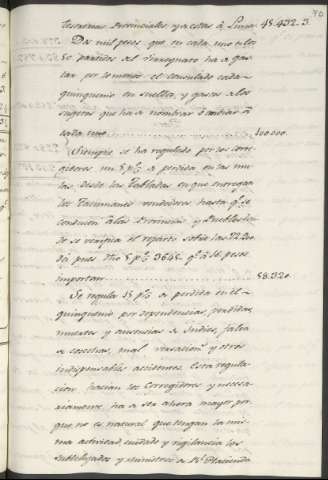 tesorerias Provinciales y aestas á Lima 45.432.3
Dos mil pesos que en cada uno de los
50 partidos del Virreynato ha de gas
tar por lo menos el consulado cada
quinquenio en sueldos, y gasos a los
sugetos que ha de nombrar
cada uno 100.000.
Siempre se ha regulado por los corre
gidores un 8 p% de perdida en las mu
las, desde las Tabladas en que entregan
los Tucumanes vendedores hasta qe. se
conducen álas Provincias y Pueblos don
de se verifica el reparto sobre las
dá pues dho 8 p% 3645 qe. á 16 pesos
importan 58.320.
Se regula 15 p% de perdida en el
quinquenio por dependencias, perdidas
muertes y ausencias de Indios, falta
de cosechas, mal y otros
indispensables accidentes. Esta regula
cion hacian los Corregidores y necesa
riamente ha de ser ahora mayor por
que no es natural que tengan la mis
ma actividad, cuidado y vigilancia los
Subdelegados y ministros de Rl. Hacienda